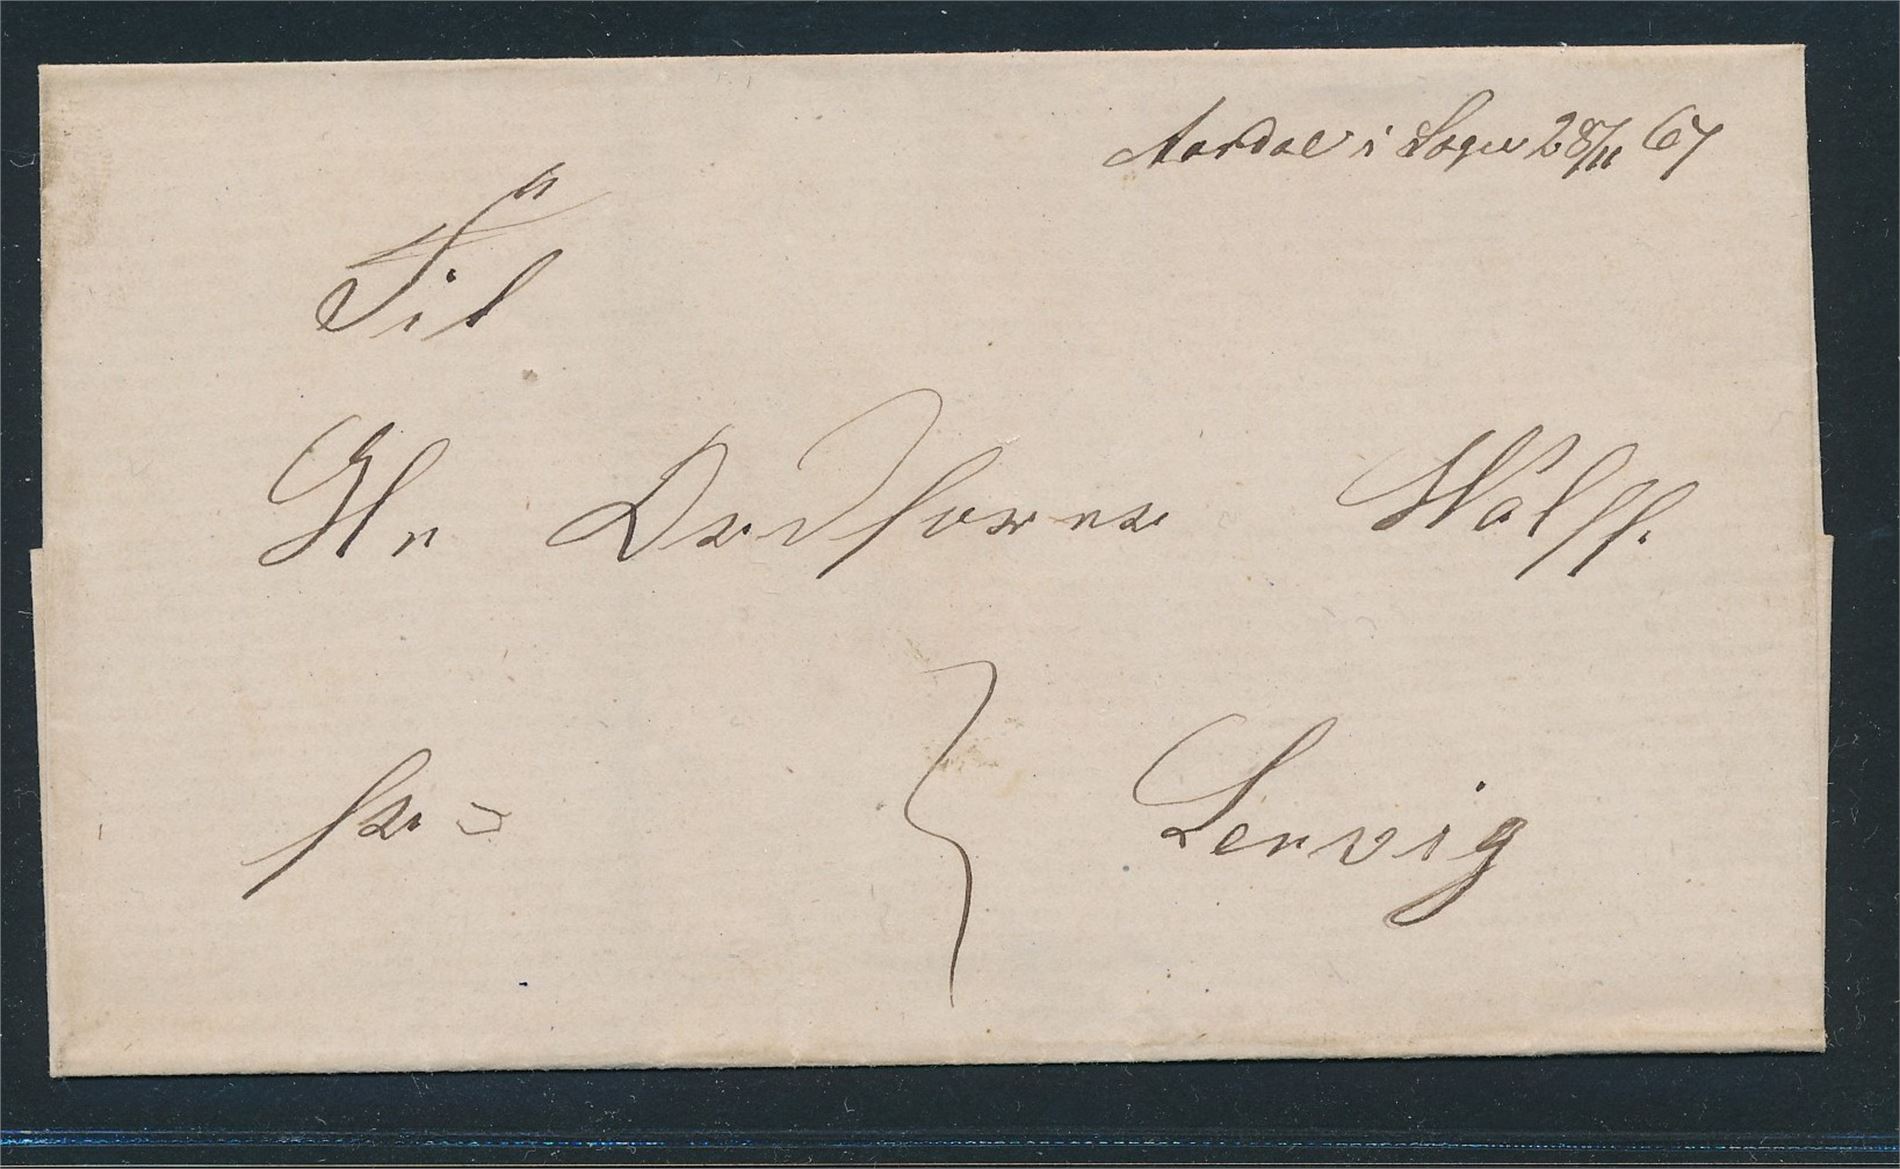 Aardal i Sogn 28/11 67
Til
Hr Ordfører Wolff.
fr. =
Lervig